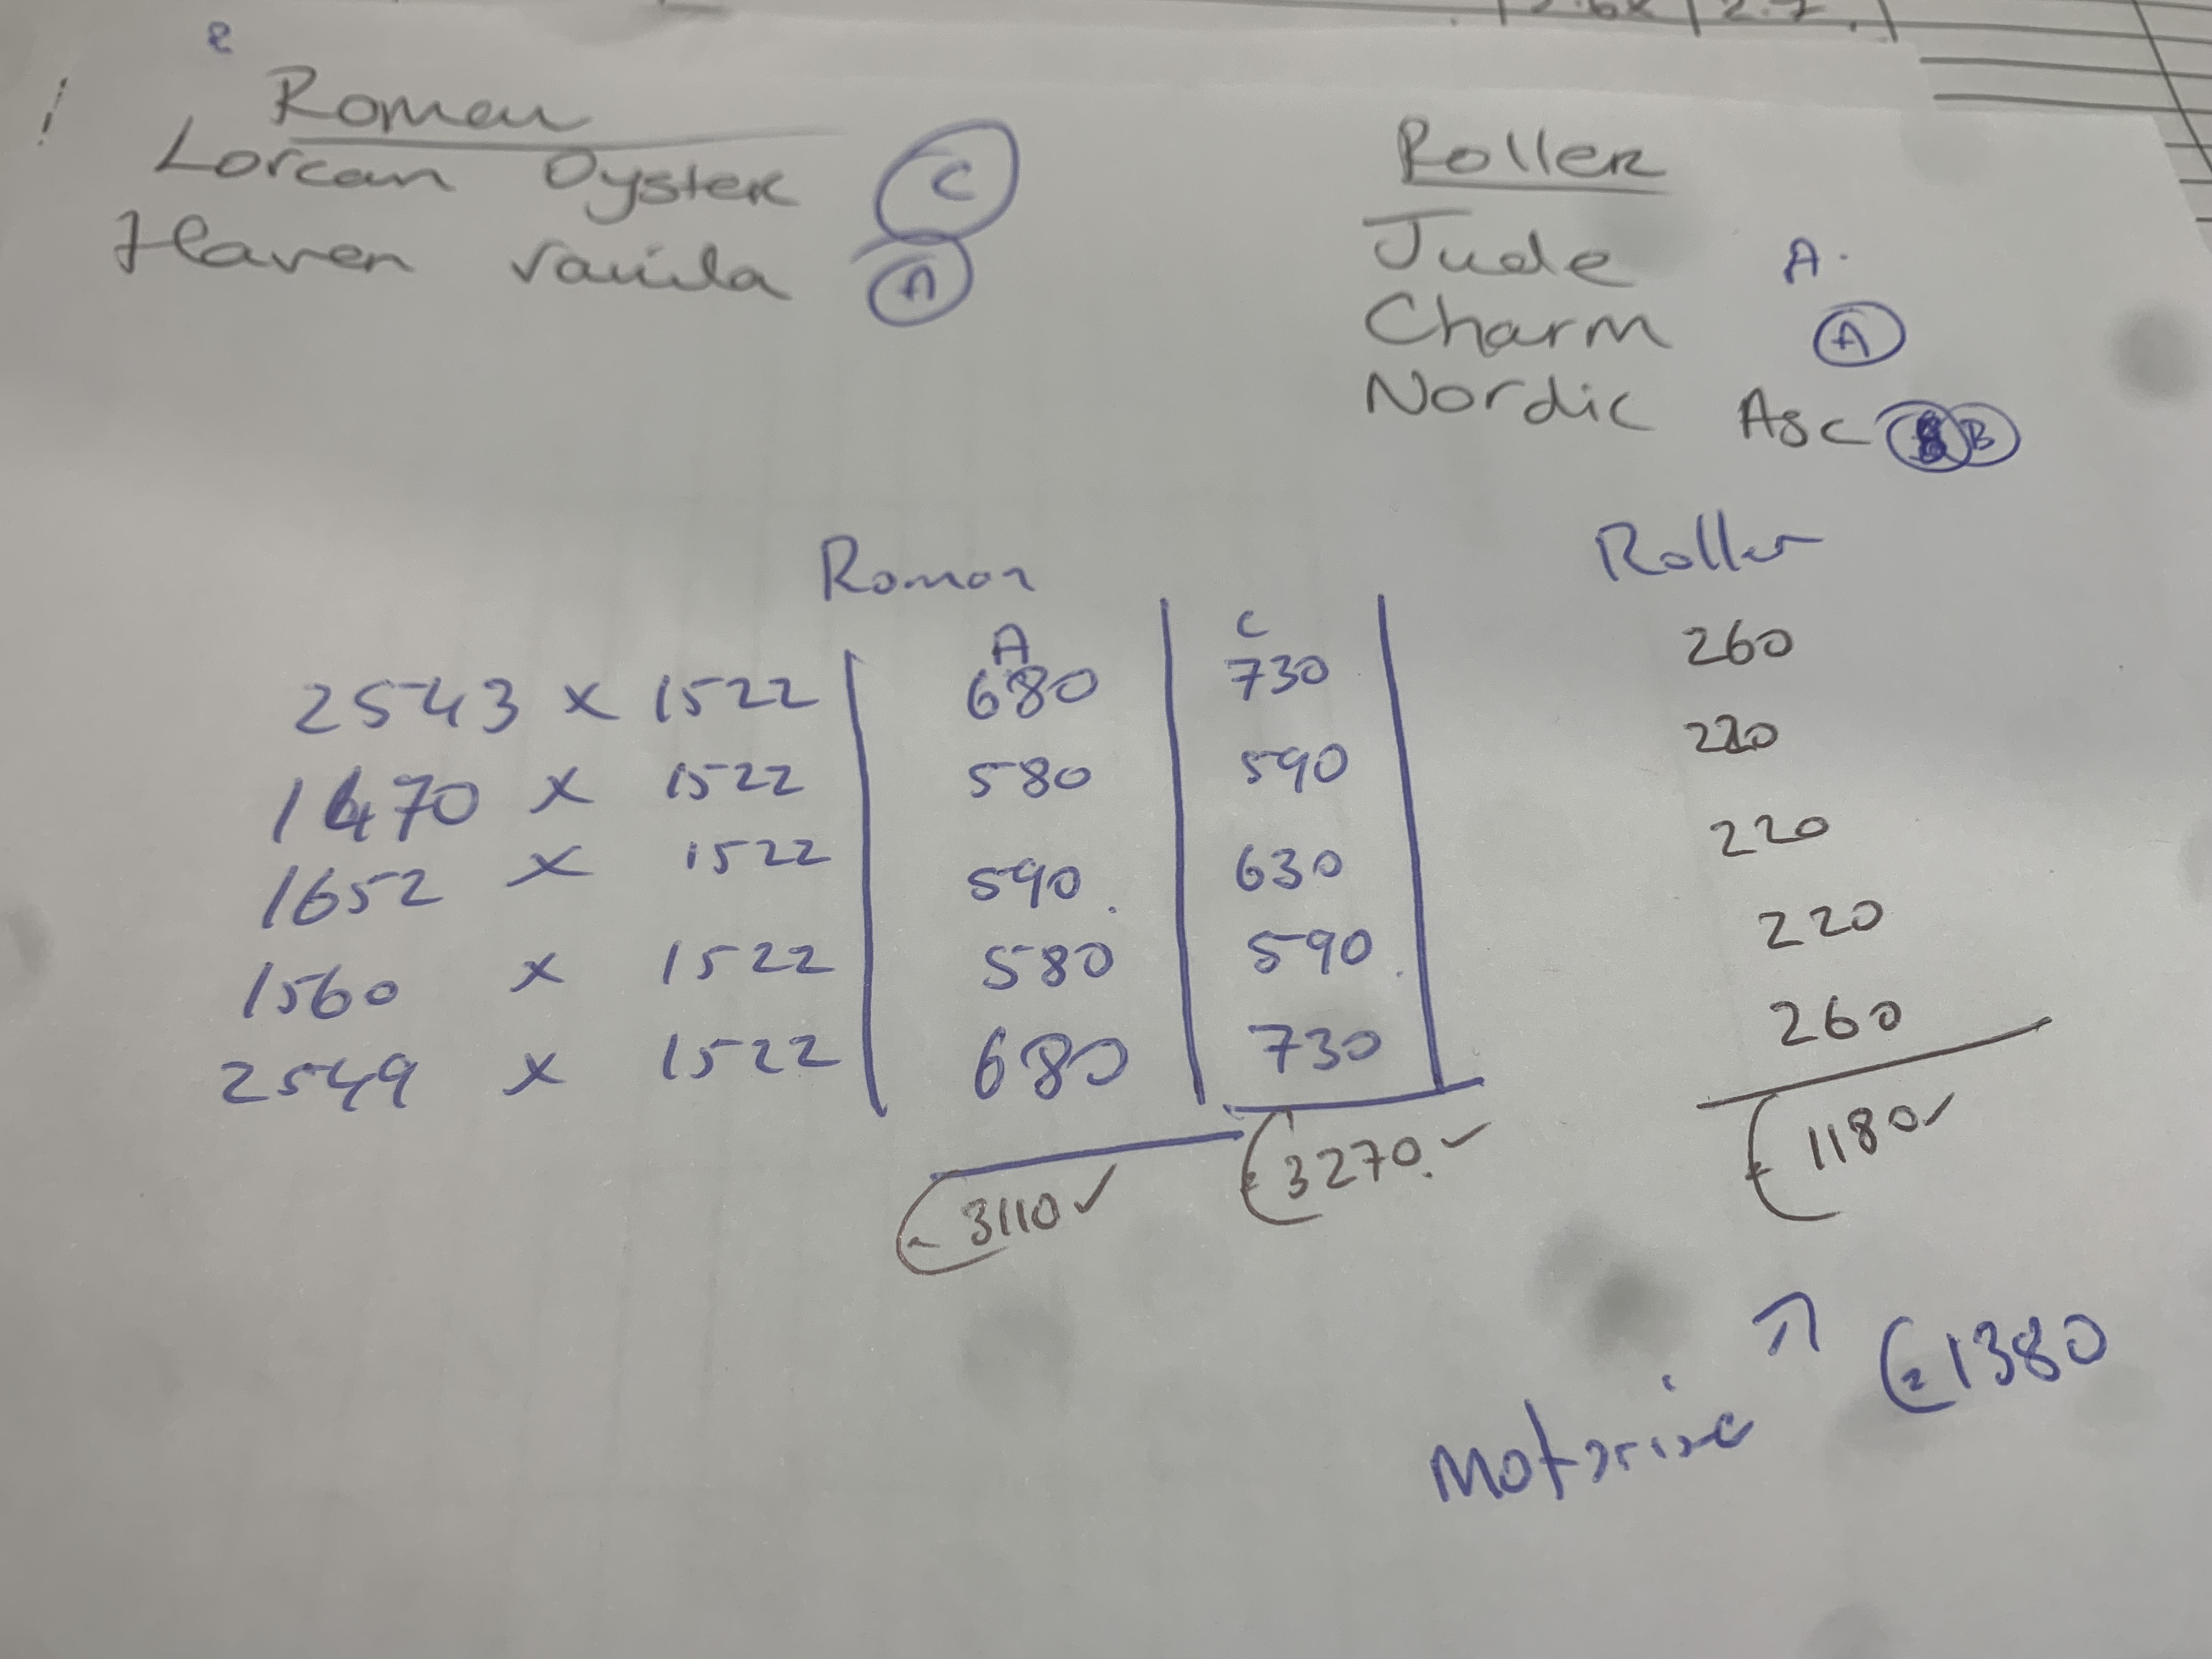 Roman
Lorcan Oyster C
Haven Vanila A
Roller
Jude A.
Charm A
Nordic Asc B
Roman
Roller
A C
2543 x 1522 680 730 260
1470 x 1522 580 590 220
1652 x 1522 590. 630 220
1560 x 1522 580 590. 220
2549 x 1522 680 730 260
3110 ✓ £3270. ✓ £1180 ✓
Motorise ↗ £1380